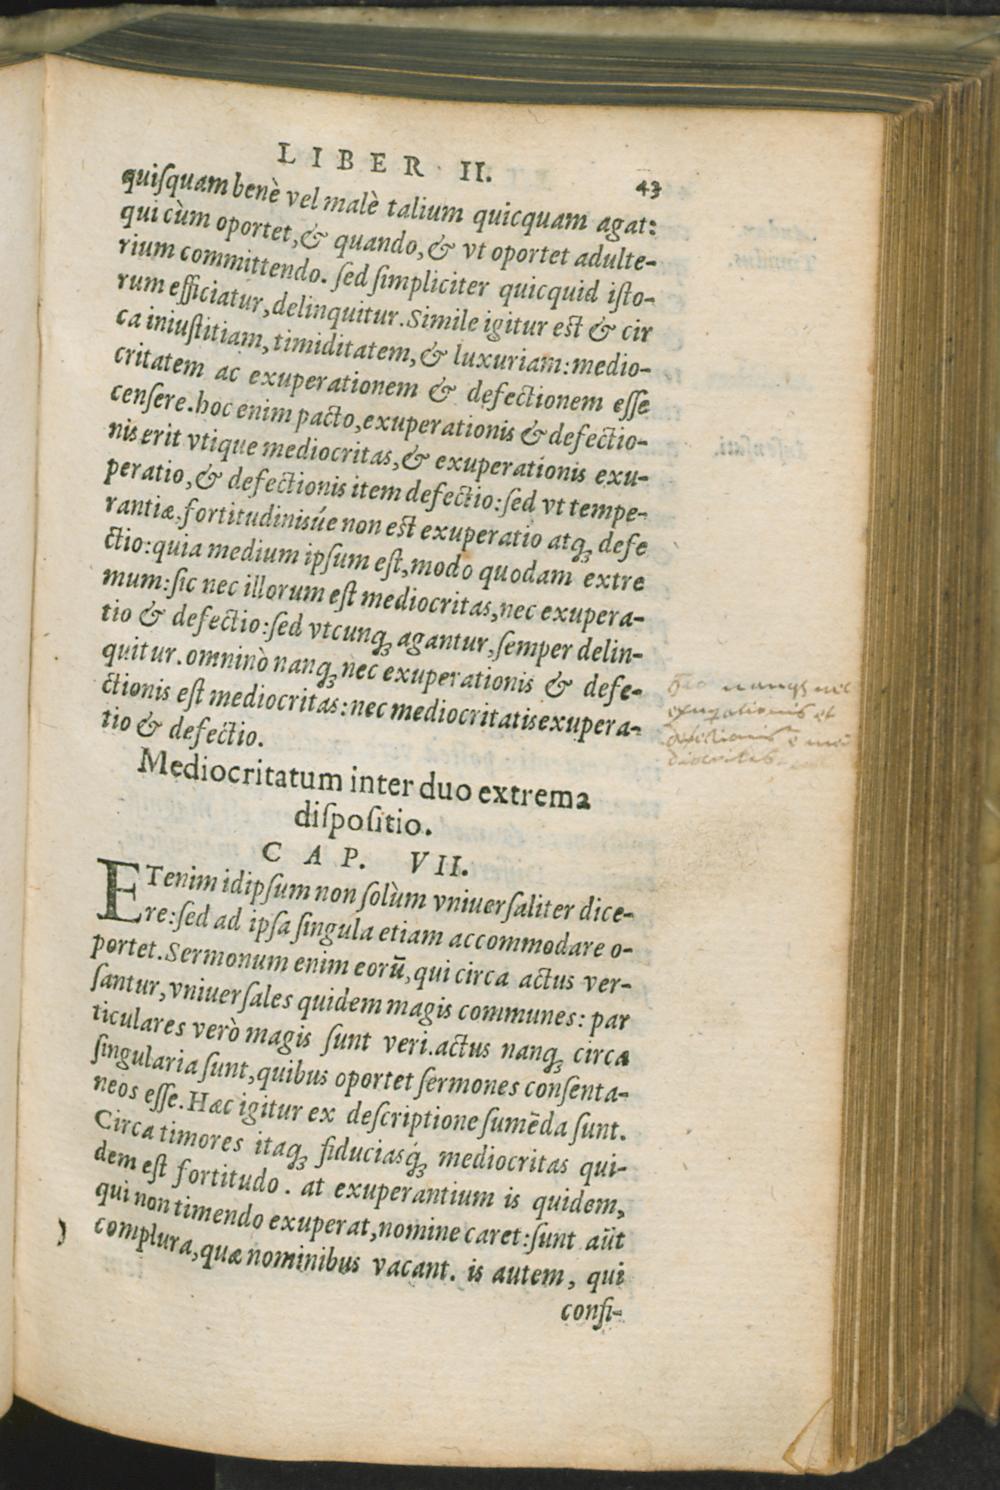 LIBER II. 43
quiſquam benè vel malè talium quicquam agat:
qui cùm oportet, & quando, & vt oportet adulte-
rium committendo. ſed ſimpliciter quicquid iſto-
rum efficiatur, delinquitur. Simile igitur est & cir
ca iniuſtitiam, timiditatem, & luxuriam: medio-
critatem ac exuperationem & defectionem eſſe
cenſere. hoc enim pacto, exuperationis & defectio-
nis erit vtique mediocritas, & exuperationis exu-
peratio, & defectionis item defectio: ſed vt tempe-
rantiæ, fortitudinisúe non est exuperatio atq; defe
ctio: quia medium ipſum eſt, modo quodam extre
mum: ſic nec illorum eſt mediocritas, nec exupera-
tio & defectio: ſed vtcunq; agantur, ſemper delin-
quitur. omninò nanq; nec exuperationis & defe-
ctionis eſt mediocritas: nec mediocritatis exupera-
tio & defectio.
nanq; nec
exuperationis et
Mediocritatum inter duo extrema
diſpoſitio.
CAP. VII.
ETenim id ipſum non ſolùm vniuerſaliter dice-
re: ſed ad ipſa ſingula etiam accommodare o-
portet. Sermonum enim eorū, qui circa actus ver-
ſantur, vniuerſales quidem magis communes: par
ticulares verò magis ſunt veri. actus nanq; circa
ſingularia ſunt, quibus oportet ſermones conſenta-
neos eſſe. Hæc igitur ex deſcriptione ſumēda ſunt.
Circa timores itaq; fiduciasq́; mediocritas qui-
dem eſt fortitudo. at exuperantium is quidem,
qui non timendo exuperat, nomine caret: ſunt aūt
complura, quæ nominibus vacant. is autem, qui
conſi-